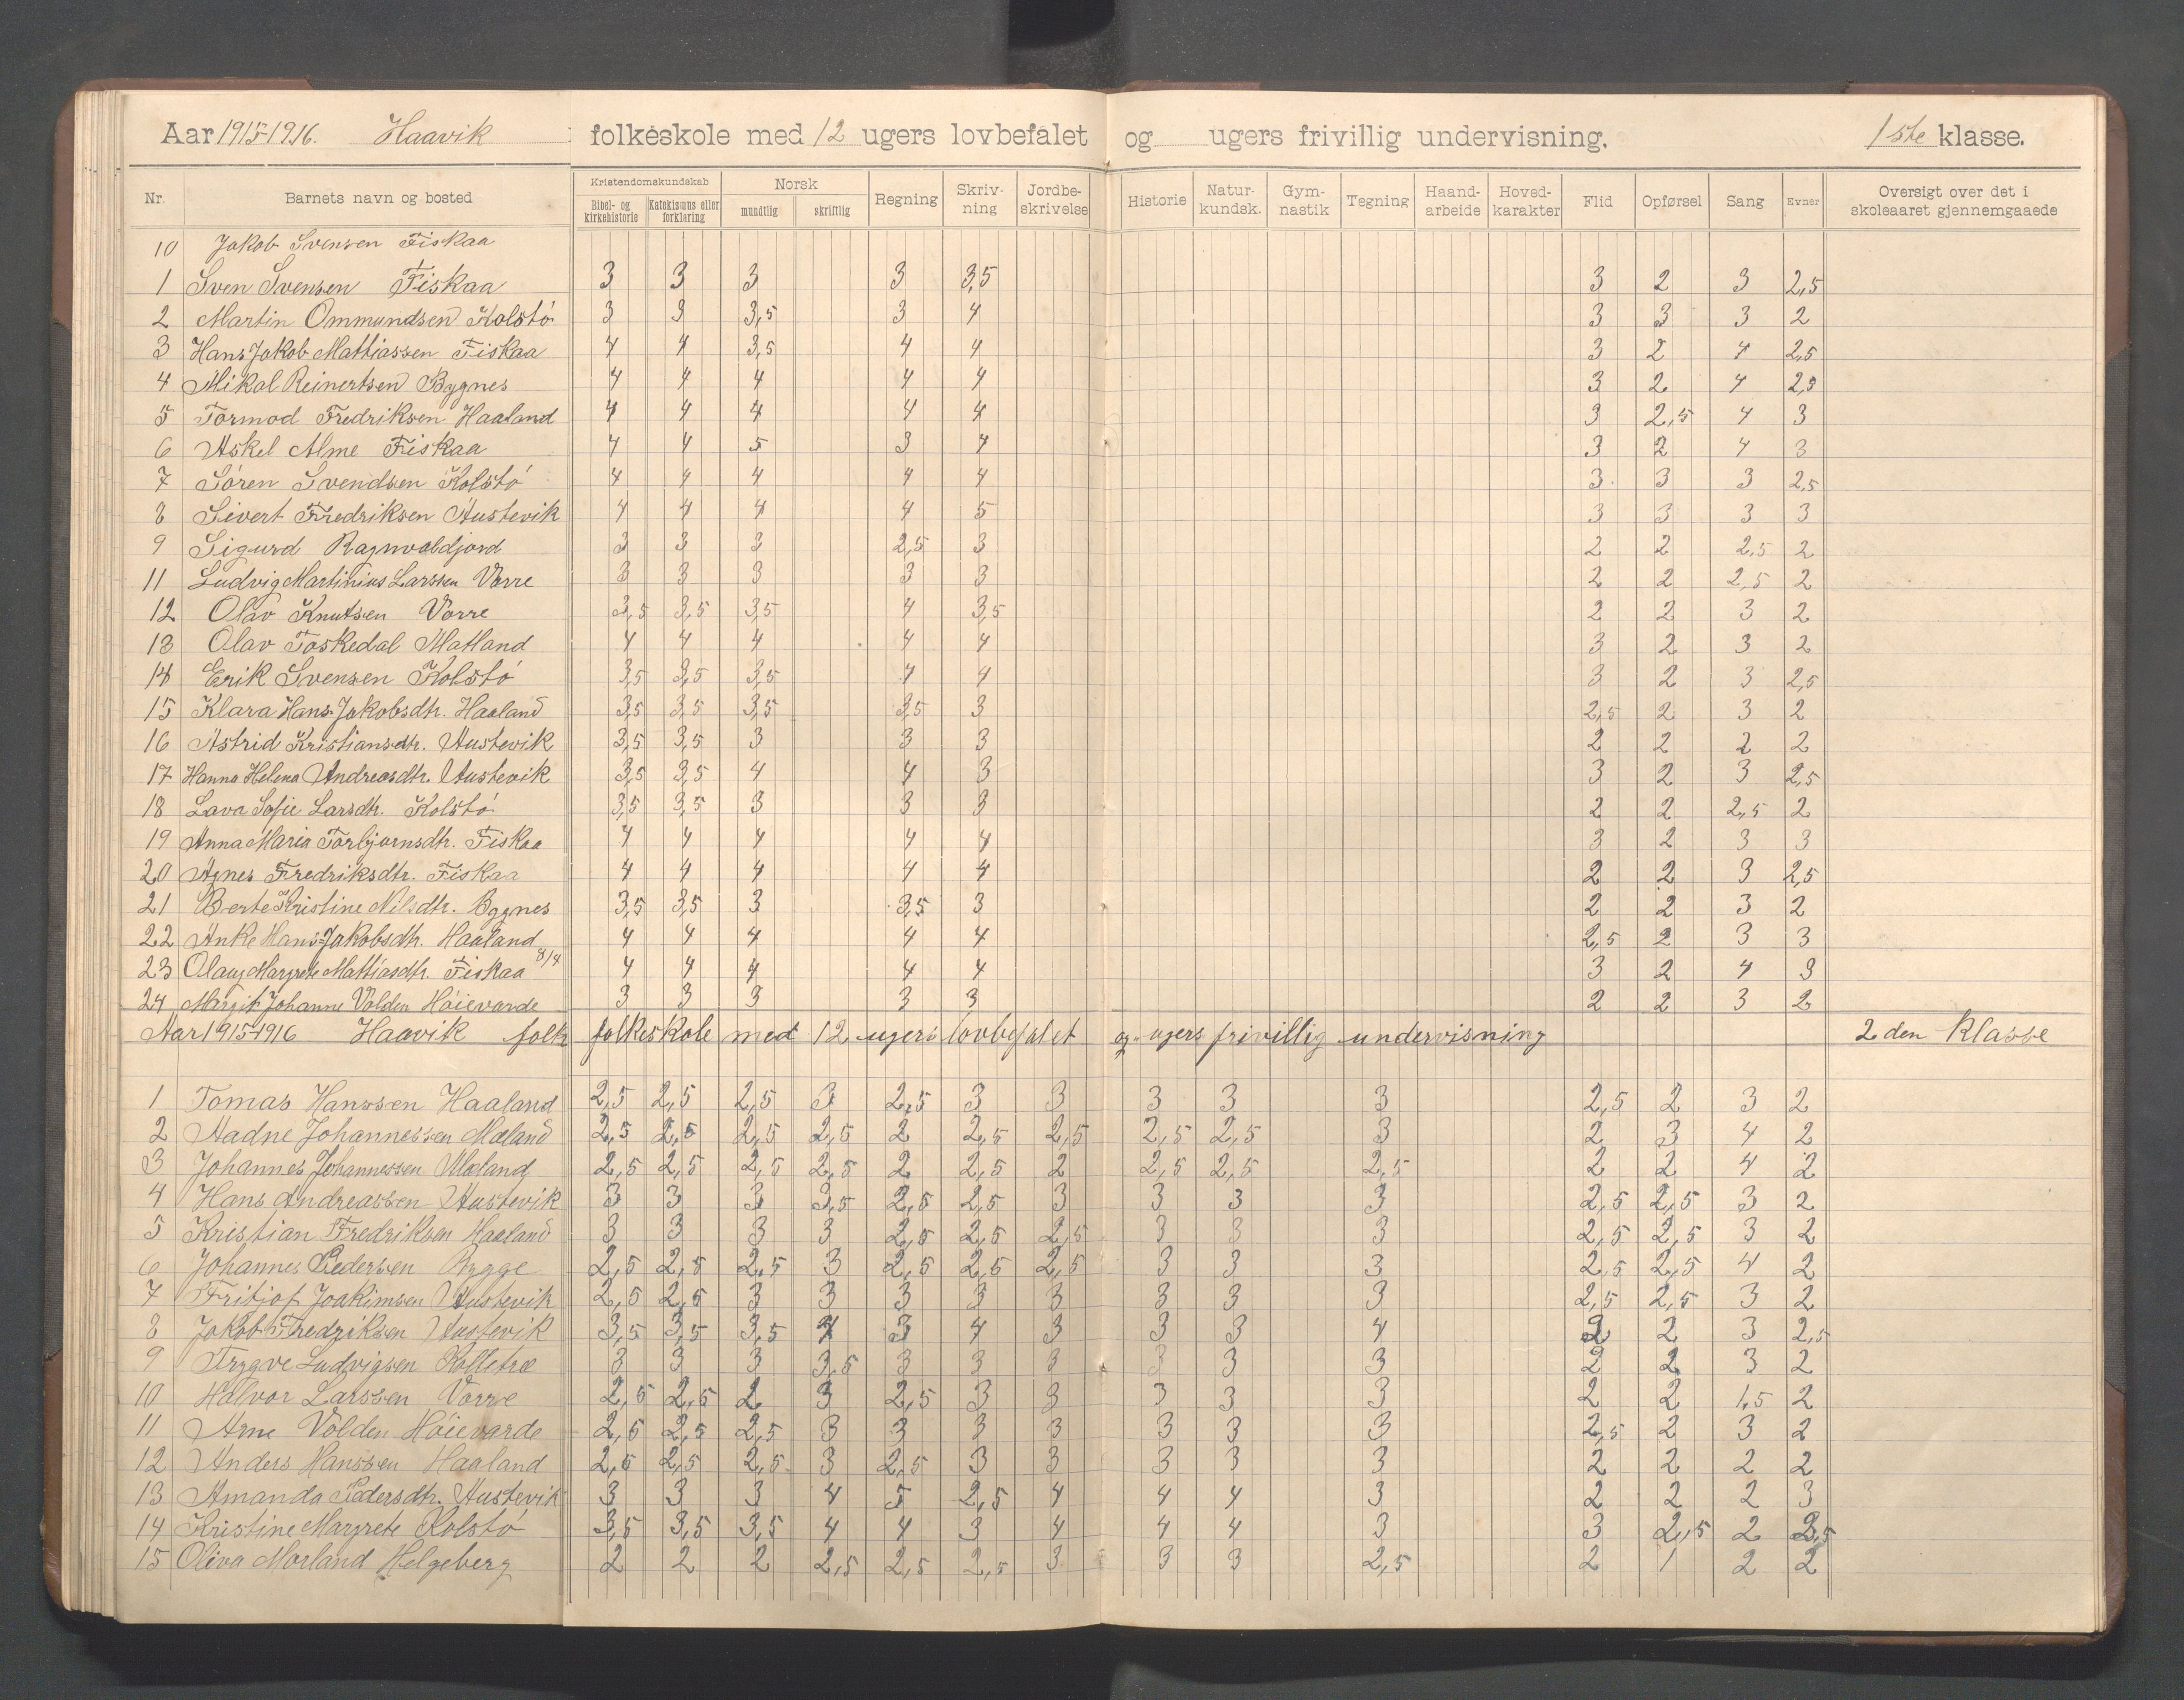 Aar 1915-1916. Haavik folkeskole med 12 ugers lovbefalet og ugers frivillig undervisning. 1ste klasse.
Nr. Barnets navn og bosted Kristendomskundskab Bibel- og kirkehistorie Katekismus eller forklaring Norsk mundtlig skriftlig Regning Skrivning Jordbeskrivelse Historie Naturkundsk. Gymnastik Tegning Haandarbeide Hovedkarakter Flid Opførsel Sang Evner Oversigt over det i skoleaaret gjennemgaaede
10 Jakob Svensen Fiskaa
1 Sven Svensen Fiskaa 3 3 3 3 3,5 3 2 3 2,5
2 Martin Ommundsen Kolstó 3 3 3,5 3 4 3 3 3 2
3 Hans Jakob Mattiassen Fiskaa 4 4 3,5 4 4 3 2 4 2,5
4 Mikal Reinertsen Bygnes 4 4 4 4 4 3 2 4 2,5
5 Tormod Fredriksen Haaland 4 4 4 4 4 3 2,5 4 3
6 Askel Alme Fiskaa 4 4 5 3 4 3 2 4 3
7 Sóren Svendsen Kolstó 4 4 4 4 4 3 3 3 2,5
8 Sivert Fredriksen Austevik 4 4 4 4 5 3 3 3 3
9 Sigurd Ragnvaldjord 3 3 3 2,5 3 2 2 2,5 2
11 Ludvig Martinius Larssen Vorre 3 3 3 3 3 2 2 2,5 2
12 Olav Knutsen Vorre 3,5 3,5 3,5 4 3,5 2 2 3 2
13 Olav Toskedal Matland 4 4 4 4 4 3 2 3 2
14 Erik Svensen Kolstó 3,5 3,5 3,5 4 4 3 2 3 2,5
15 Klara Hans-Jakobsdtr. Haaland 3,5 3,5 3,5 3,5 3 2,5 2 3 2
16 Astrid Kristiansdtr. Austevik 3,5 3,5 3 3 3 2 2 2 2
17 Hanna Helena Andreasdtr. Austevik 3,5 3,5 4 4 3 3 2 3 2,5
18 Lava Sofie Larsdtr. Kolstó 3,5 3,5 3 3 3 2 2 2,5 2
19 Anna Maria Torbjørnsdtr. Fiskaa 4 4 4 4 4 3 2 3 3
20 Agnes Fredriksdtr. Fiskaa 4 4 4 4 4 2 2 3 2,5
21 Berte Kristine Nilsdtr. Bygnes 3,5 3,5 3 3,5 3 2 2 3 2
22 Anke Hans-Jakobsdtr. Haaland 4 4 4 4 4 2,5 2 3 3
23 Olaug Margrete Mattiasdtr. Fiskaa 8/4 4 4 4 4 4 3 2 4 3
24 Margit Johanne Volden Hóievarde 3 3 3 3 3 2 2 3 2
Aar 1915-1916 Haavik folk folkeskole med 12 ugers lovbefalet og - ugers frivillig undervisning 2den Klasse
1 Tomas Hanssen Haaland 2,5 2,5 2,5 3 2,5 3 3 3 3 3 2,5 2 3 2
2 Aadne Johannessen Mæland 2,5 2,5 2,5 2,5 2 2,5 2,5 2,5 2,5 3 2 3 4 2
3 Johannes Johannessen Mæland 2,5 2,5 2,5 2,5 2 2,5 2 2,5 2,5 2,5 2 2 4 2
4 Hans Andreassen Austevik 3 3 3 3,5 2,5 2,5 3 3 3 3 2,5 2,5 3 2
5 Kristian Fredriksen Haaland 3 3 3 3 2,5 2,5 2,5 3 3 3 2,5 2,5 3 2
6 Johannes Pedersen Bygge 2,5 2,5 2,5 3 2,5 2,5 2,5 3 3 3 2,5 2,5 4 2
7 Fritjof Joakimsen Austevik 2,5 2,5 3 3 3 3 3 3 3 3 2,5 2,5 3 2
8 Jakob Fredriksen Austevik 3,5 3,5 3,5 4 3 4 3 3 3 4 2 2 3 2,5
9 Trygve Ludvigsen Kolletræ 3 3 3 3,5 3 3 3 3 3 3 2 2 3 2
10 Halvor Larssen Vorre 2,5 2,5 2 3 2,5 3 3 3 3 3 2 2 1,5 2
11 Arne Volden Hóievarde 2,5 2,5 2,5 3 3 3 3 3 3 3 2,5 2 3 2
12 Anders Hanssen Haaland 2,5 2,5 2,5 3 2,5 3 3 3 3 3 2 2 2 2
13 Amanda Pedersdtr. Austevik 3 3 3 4 5 2,5 4 4 4 3 2 2 2 3
14 Kristine Margrete Kolstó 3,5 3,5 3,5 4 4 3 4 4 4 3 3 2,5 2 2,5
15 Oliva Morland Helgeberg 2 2 2 2,5 2,5 2,5 3 3 3 2,5 2 1 2 2